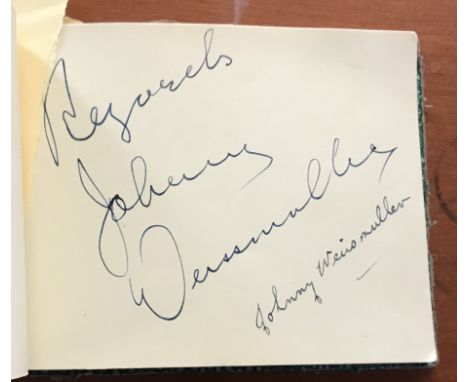 Regards
Johnny
Weissmuller
Johnny Weissmuller